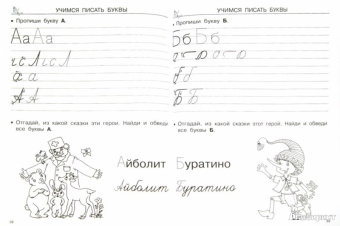 УЧИМСЯ ПИСАТЬ БУКВЫ
• Пропиши букву А.
АаАа
а
А А
• Отгадай, из какой сказки эти герои. Найди и обведи все буквы А.
Айболит
Айболит
УЧИМСЯ ПИСАТЬ БУКВЫ
• Пропиши букву Б.
БбБб
б б
Б Б
• Отгадай, из какой сказки эти герои. Найди и обведи все буквы Б.
Буратино
Буратино